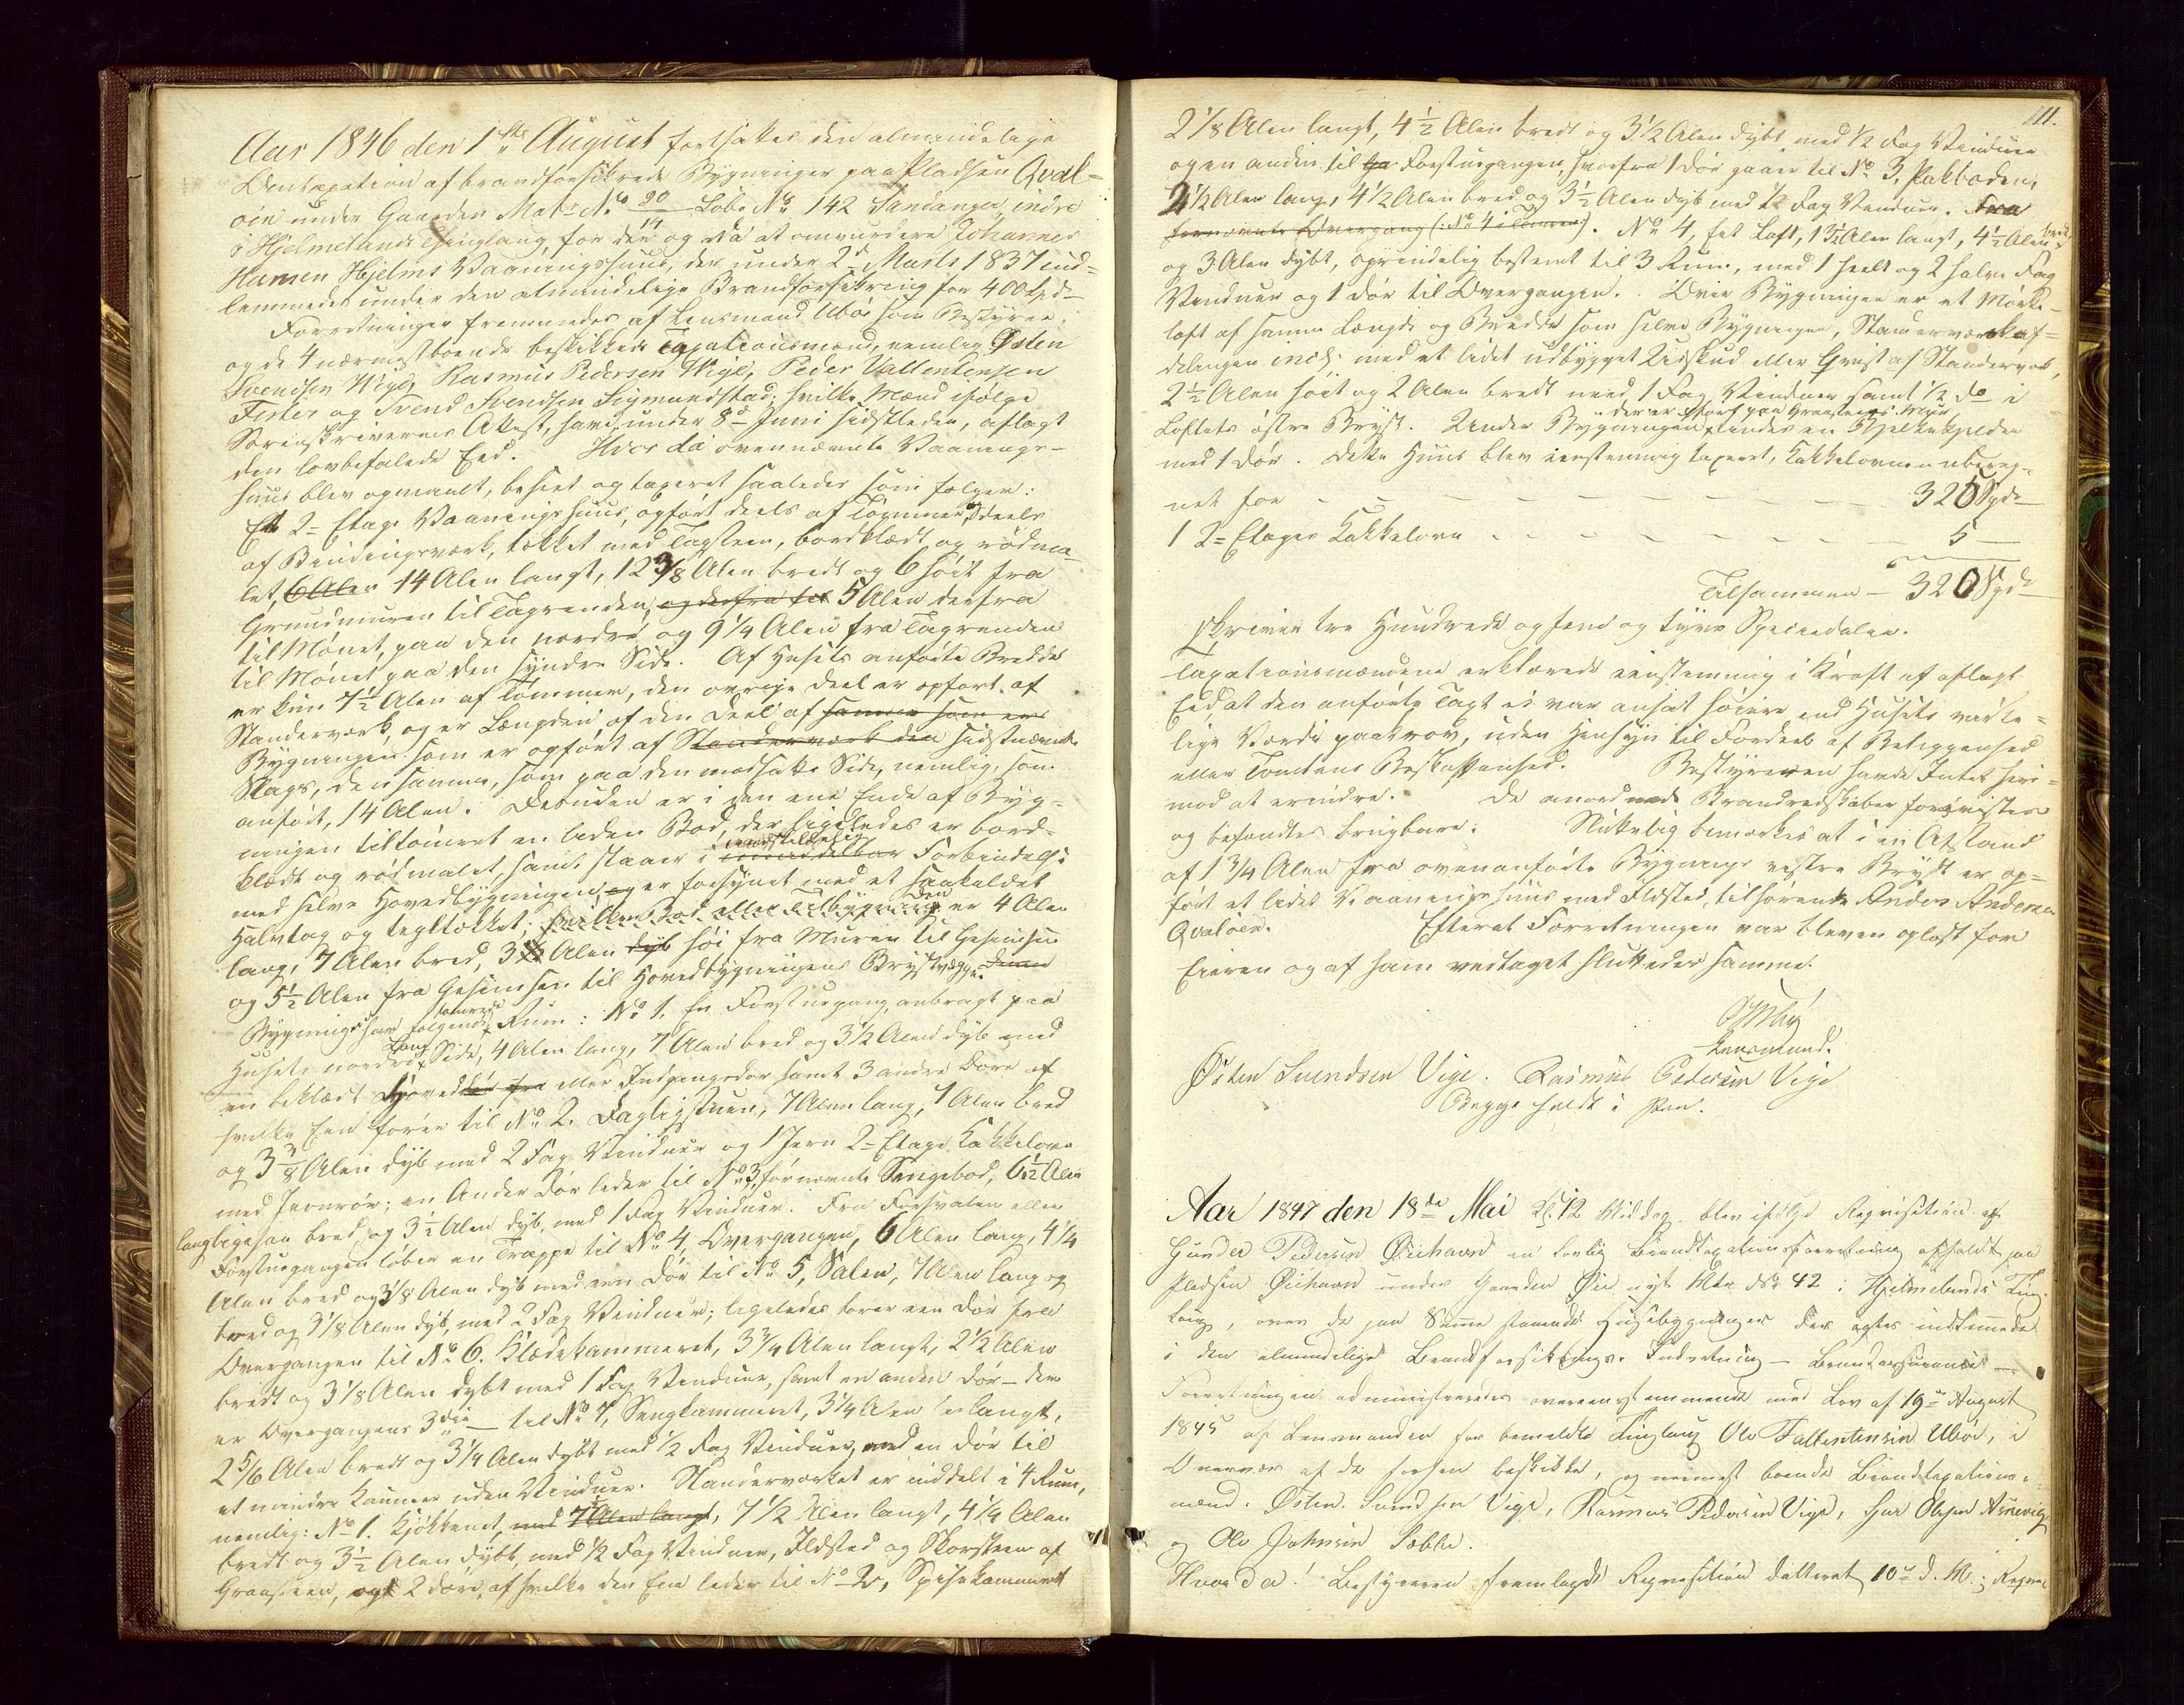 Aar 1846 den 1ste August fortsattes den almindelige
Omtaxation af brandforsikrede Bygninger paa Pladsen Qval-
öen under Gaarden Matr. No 90/14 Löb. No 142 Sandanger indre
i Hjelmelands Thinglaug, for der og da at omvurdere Johannes
Hansen Hjelms Vaaningshuus, der under 2d Marts 1837 ind-
lemmedes under den almindelige Brandforsikring for 400 Spd
Forretningen fremmedes af Lensmand Uböe som Bestyrer
og de 4 nærmestboende beskikkede Taxationsmænd, nemlig Östen
Svendsen Wige, Rasmus Pedersen Wige, Peder Vallentinsen
Fister og Svend Svendsen Sigmundstad; hvilke Mænd ifölge
Sorenskriverens Atest, have under 8d Juni sidstleden, aflagt
den lovbefalede Eed. Hvor da ovennævnte Vaanings-
huus blev opmaalt, beseet og taxeret saaledes som fölger:
Et 2- Etage Vaaningshuus, opfört deels af Tömmer og deels
af Bindingsværk, tækket med Tagsteen, bordklædt og rödma-
let, 6 Alen 14 Alen langt, 12 3/8 Alen bredt og 6 höit fra
Grundmuren til Tagrenden, og derfra til 5 Alen derfra
til Mönet, paa den nordre og 9 1/4 Alen fra Tagrenden
til Mönet paa den syndre Side. Af Husets anförte Bredde
er kun 7 1/2 Alen af Tömmer, den övrige Deel er opfört af
Standerværk, og er Længden af den Deel af samme som er
Bygningen som er opfört af Standerværk den sidstnævnte
Slags, densamme, som paa den modsatte Side, nemlig, som
anfört, 14 Alen. Desuden er i den ene Ende af Byg-
ningen tiltömret en liden Bod, der ligeledes er bord-
klædt og rödmalet, samt staaer i umiddelbar Forbindelse
med selve Hovedbygningen og er forsynet med et saakaldet
Halvtag og tegltækket; hvilken Bod eller Tilbygning er 4 Alen
lang, 7 Alen bred, 3 1/2 Alen dyb höi fra Muren til Gesimsen
og 5 1/2 Alen fra Gesimsen til Hovedbygningens Brystvæg. Denne
Bygning har fölgende Rum: No 1. En Forstuegang, anbragt paa
Husets nordre Lang Side, 4 Alen lang, 7 Alen bred og 3 1/2 Alen dyb med
en beklædt Hoved dör fra eller Indgangsdör samt 3 andre Döre af
hvilke Een förer til No 2. Dagligstuen, 7 Alen lang, 7 Alen bred
og 3 3/8 Alen dyb med 2 Fag Vinduer og 1 Jern 2- Etage Kakkelovn
med Jernrör; en Anden Dör leder til No 3, förnævnte Sengebod, 6 1/2 Alen
lang ligesaa bred, og 3 1/2 Alen dyb, med 1 Fag Vinduer. Fra Forsvalen eller
Forstuegangen löber en Trappe til No 4, Overgangen, 6 Alen lang, 4 1/4
Alen bred og 3 1/8 Alen dyb med een Dör til No 5, Salen, 7 Alen lang og
bred og 3 1/8 Alen dyb, med 2 Fag Vinduer; ligeledes förer een Dör fra
Overgangen til No 6. Klædekammeret, 3 3/4 Alen langt, 2 1/2 Alen
bredt og 3 1/8 Alen dybt med 1 Fag Vinduer, samt en anden Dör – der
er Overgangens 3die – til No 7, Sengkammeret, 3 1/4 Alen langt,
2 5/6 Alen bredt og 3 1/4 Alen dybt med 1/2 Fag Vinduer, med en Dör til
et mindre Kammer uden Vinduer. Standerværket er inddelt i 4 Rum,
nemlig: No 1. Kjökkenet, med 7 Alen langt, 7 1/2 Alen langt, 4 1/4 Alen
bredt og 3 1/2 Alen dybt, med 1/2 Fag Vinduer, Ildsted og Skorsteen af
Graasteen, og 2 Döre, af hvilke den Ene leder til No 2, Spisekammeret
111.
2 1/8 Alen langt, 4 1/2 Alen bredt og 3 1/2 Alen dybt, med 1/2 Fag Vinduer
og en anden til Forstuegangen, hvorfra 1 Dör gaaer til No 3, Pakboden,
2 1/2 Alen lang, 4 1/2 Alen bred og 3 1/2 Alen dyb med 1/2 Fag Vinduer. Fra
fornævnte Overgang (: No 4 i Tömmer :). No 4, Eet Loft, 13 1/2 Alen langt, 4 1/2 Alen bredt
og 3 Alen dybt, oprindelig bestemt til 3 Rum, med 1 heelt og 2 halve Fag
Vinduer og 1 Dör til Overgangen. Over Bygningen er et Mörke-
loft af samme Længde og Bredde som selve Bygningen, Standerværksaf-
delingen incl. med et lidet udbygget Udskud eller Qvist af Standerverk,
2 1/2 Alen höit og 2 Alen bredt med 1 Fag Vinduer samt 1/2 do i
Loftets östre Bryst. Under Bygningen der er opfört paa Graasteens Muur findes en Kjelder
med 1 Dör. Dette Huus blev eenstemmig taxeret, Kakkelovnen ubereg-
net for – – – – – – – – 320 Spd
1 2- Etages Kakkelovn – – – – – – 5 –
Tilsammen – 320 Spd
skriver tre Hundrede og fem og tyve Speciedaler.
Taxationsmændene erklærede eenstemmig i Kraft af aflagt
Eed at den anförte Taxt ei var ansat höiere end Husets virke-
lige Værdi paakrov, uden Hensyn til Fordeel af Beliggenhed
eller Tomtens Beskaffenhed. Bestyreren havde Intet her-
mod at erindre. De anordnede Brandredskaber forevistes
og befandtes brugbare. Slutelig bemærkes at i en Afstand
af 1 3/4 Alen fra ovenanförte Bygnings vestre Bryst er op-
fört et lidet Vaaningshuus med Ildsted, tilhörende Anders Andersen
Qvalöen. Efterat Forretningen var bleven oplæst for
Eieren og af ham vedtaget sluttedes samme.
Lensmand.
Östen Svendsen Vige. Rasmus Pedersen Vige
Begge holdt i Pen.
Aar 1847 den 18de Mai Kl. 12 Middag blev ifölge Reqvisition af
Gunder Pedersen Öiehavn en lovlig Brandtaxationsforretning afholdt paa
Pladsen Öiehavn under Gaarden Öie nyt Mtr. No 42 i Hjelmelands Ting-
laug, over de paa Samme staaende Huusebygninger der agtes indlemmede
i den almindelige Brandforsikrings-Indretning – Brandassurance –
Forretningen administreredes overeensstemmende med Lov af 19d August
1845 af Lensmanden for bemeldte Tinglaug Ole Falkentinsen Uböe, i
Overvær af de forhen beskikkede, og nærmest boende Brandtaxations-
mænd: Östen Svendsen Vige, Rasmus Pedersen Vige, Aanevig
og Ole Johnsen Sæbbe.
Hvor da! Bestyreren fremlagde Reqvisition datteret 10d d. M.;